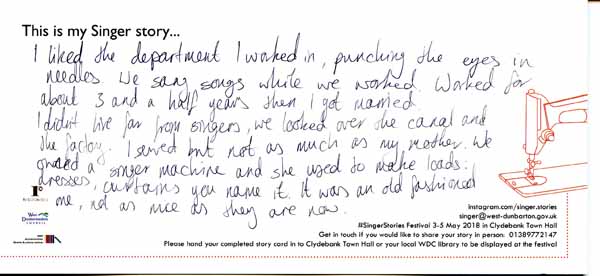 This is my Singer story...
I liked the department I worked in, punching the eyes in
needles. We sang songs while we worked. Worked for
about 3 and a half years then I got married.
I didn't live far from singers, we looked over the canal and
the factory. I sewed but not as much as my mother. We
owned a singer machine and she used to make loads:
dresses, curtains you name it. It was an old fashioned
one, not as nice as they are now.
instagram.com/singer.stories
singer@west-dunbarton.gov.uk
#SingerStories Festival 3-5 May 2018 in Clydebank Town Hall
Get in touch if you would like to share your story in person: 01389772147
Please hand your completed story card in to Clydebank Town Hall or your local WDC library to be displayed at the festival